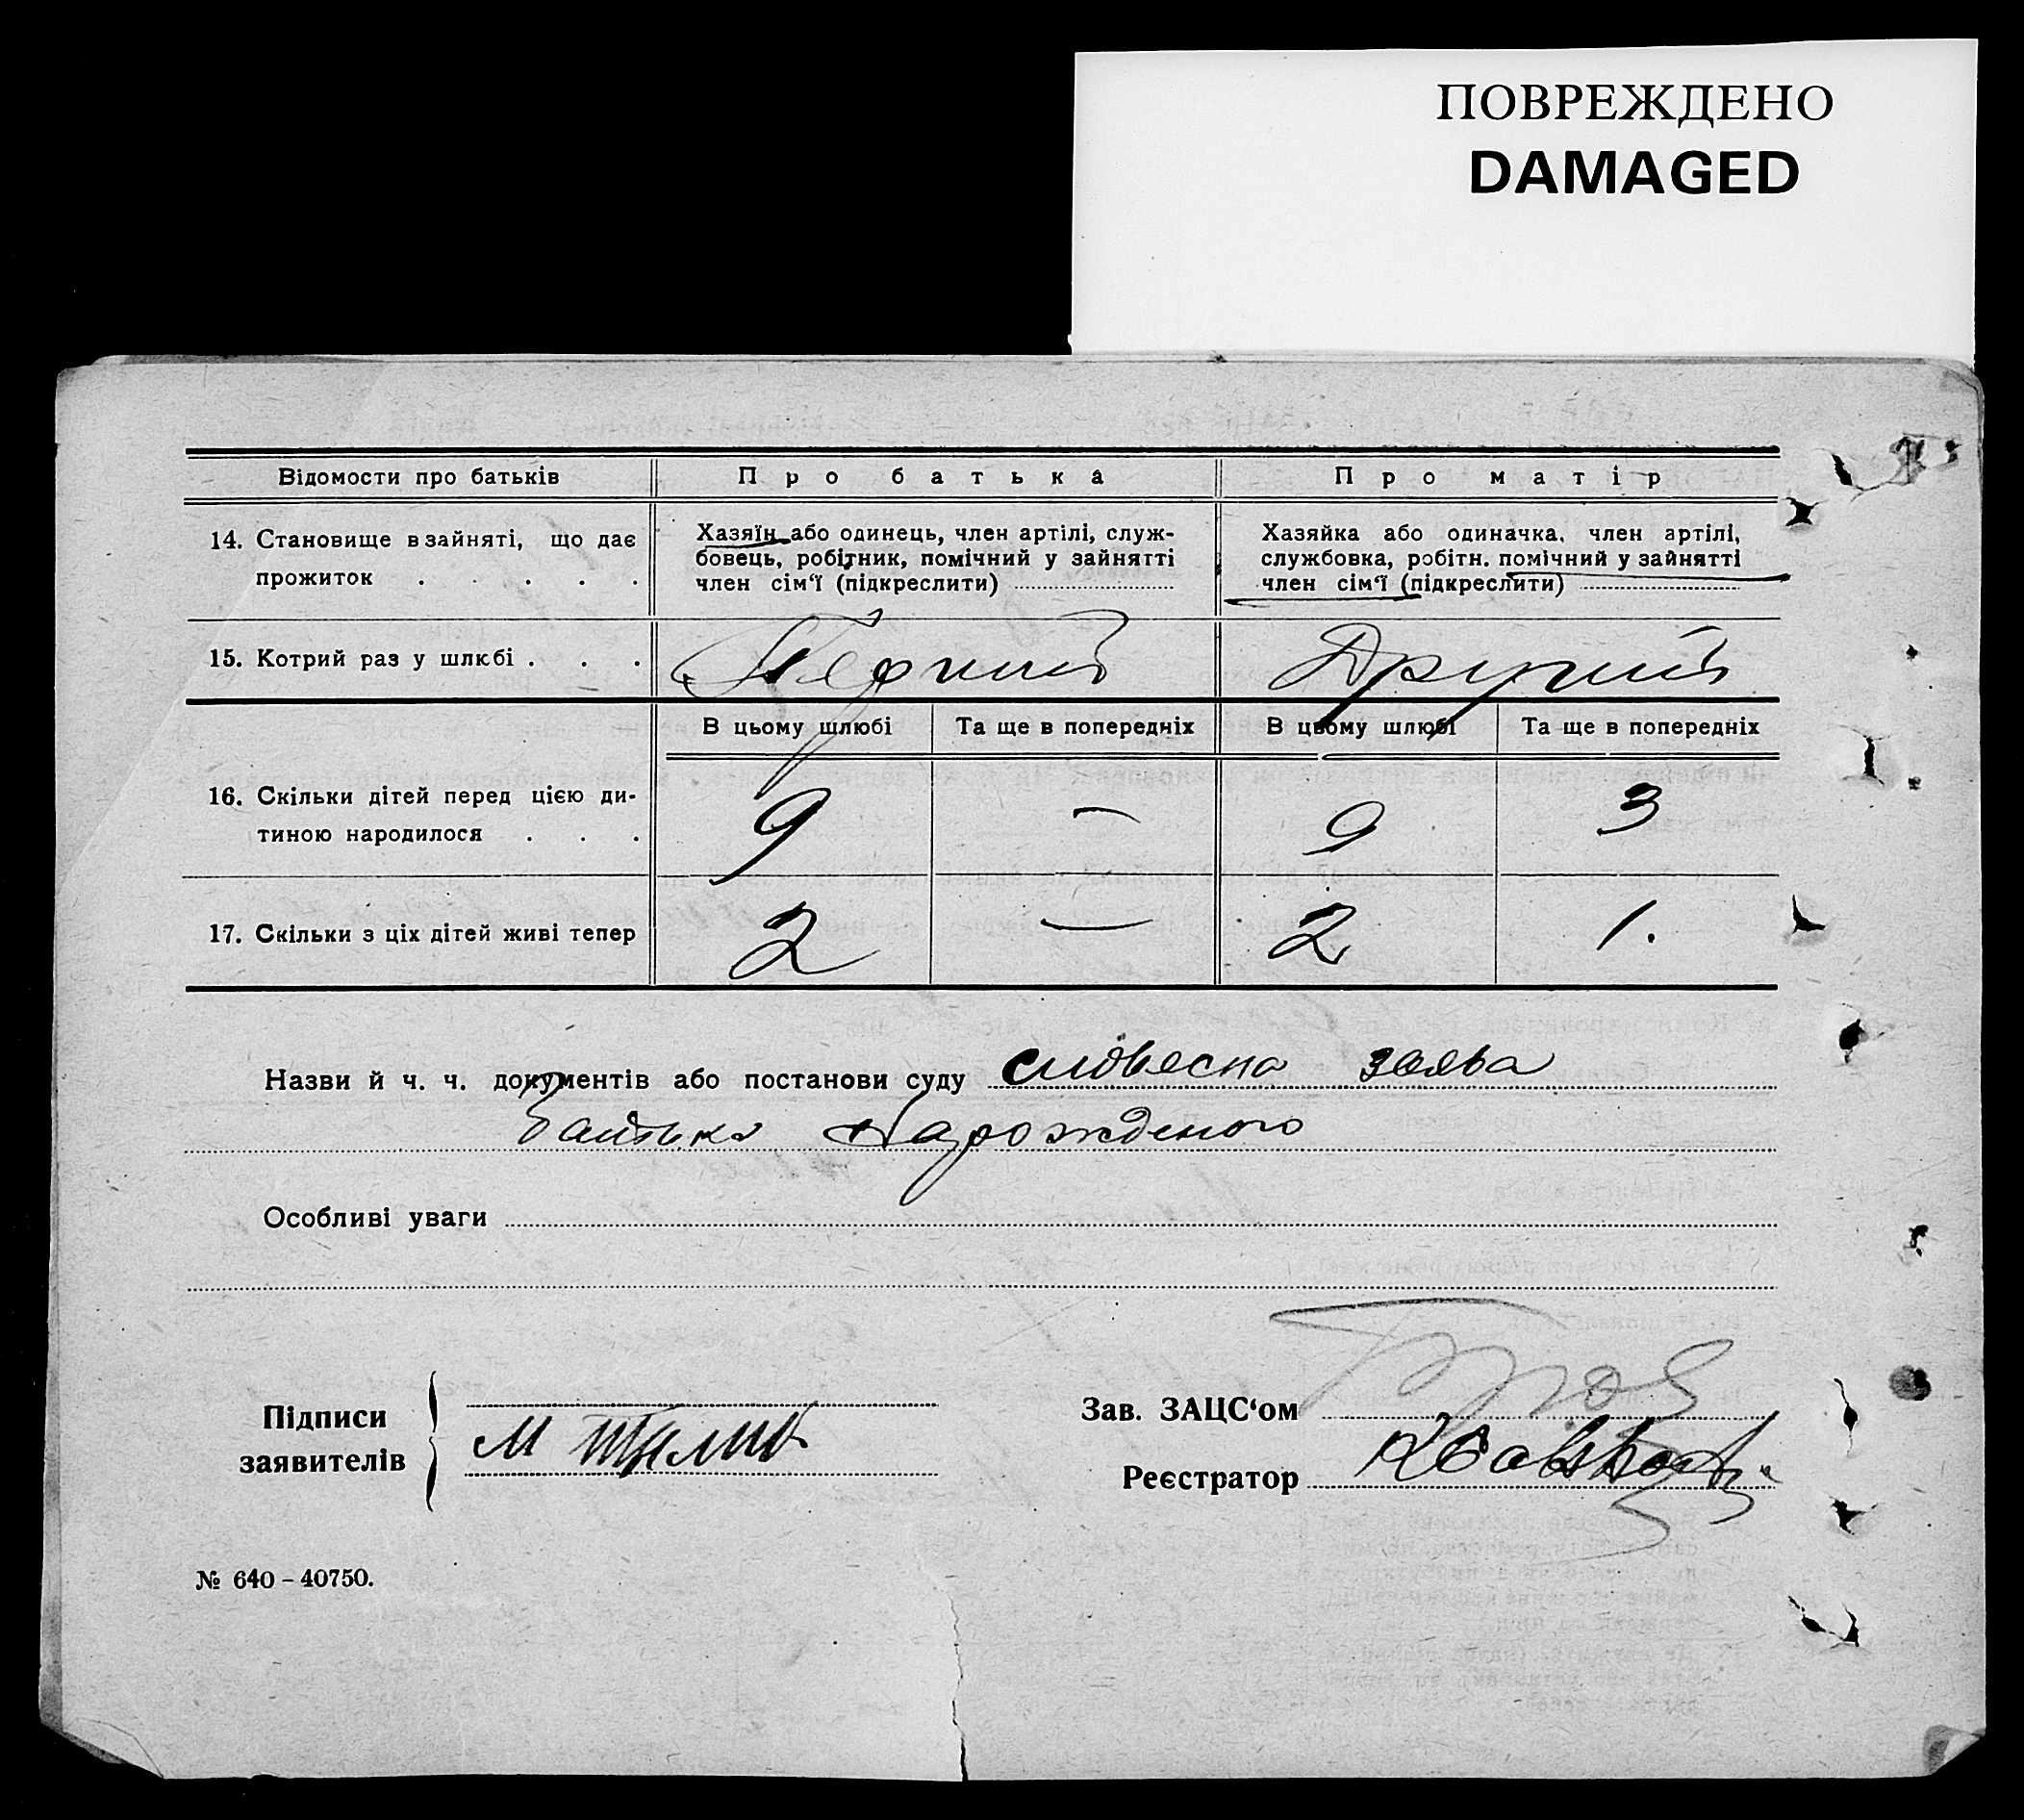 ПОВРЕЖДЕНО
DAMAGED
Відомости про батьків
Про батька
Про матір
14. Становище в зайняті, що дає
прожиток . . . . .
Хазяїн або одинець, член артілі, служ-
бовець, робітник, помічний у зайнятті
член сім‘ї (підкреслити)
Хазяйка або одиначка, член артілі,
службовка, робітн. помічний у зайнятті
член сім‘ї (підкреслити)
15. Котрий раз у шлюбі . . .
Первий
Другий
В цьому шлюбі
Та ще в попередніх
В цьому шлюбі
Та ще в попередніх
16. Скільки дітей перед цією ди-
тиною народилося . . .
9 — 9 3
17. Скільки з ціх дітей живі тепер
2 — 2 1.
Назви й ч. ч. документів або постанови суду словесна заява
батька нарожденого
Особливі уваги
Підписи
заявителів
М
Зав. ЗАЦС‘ом
Реєстратор
№ 640 – 40750.